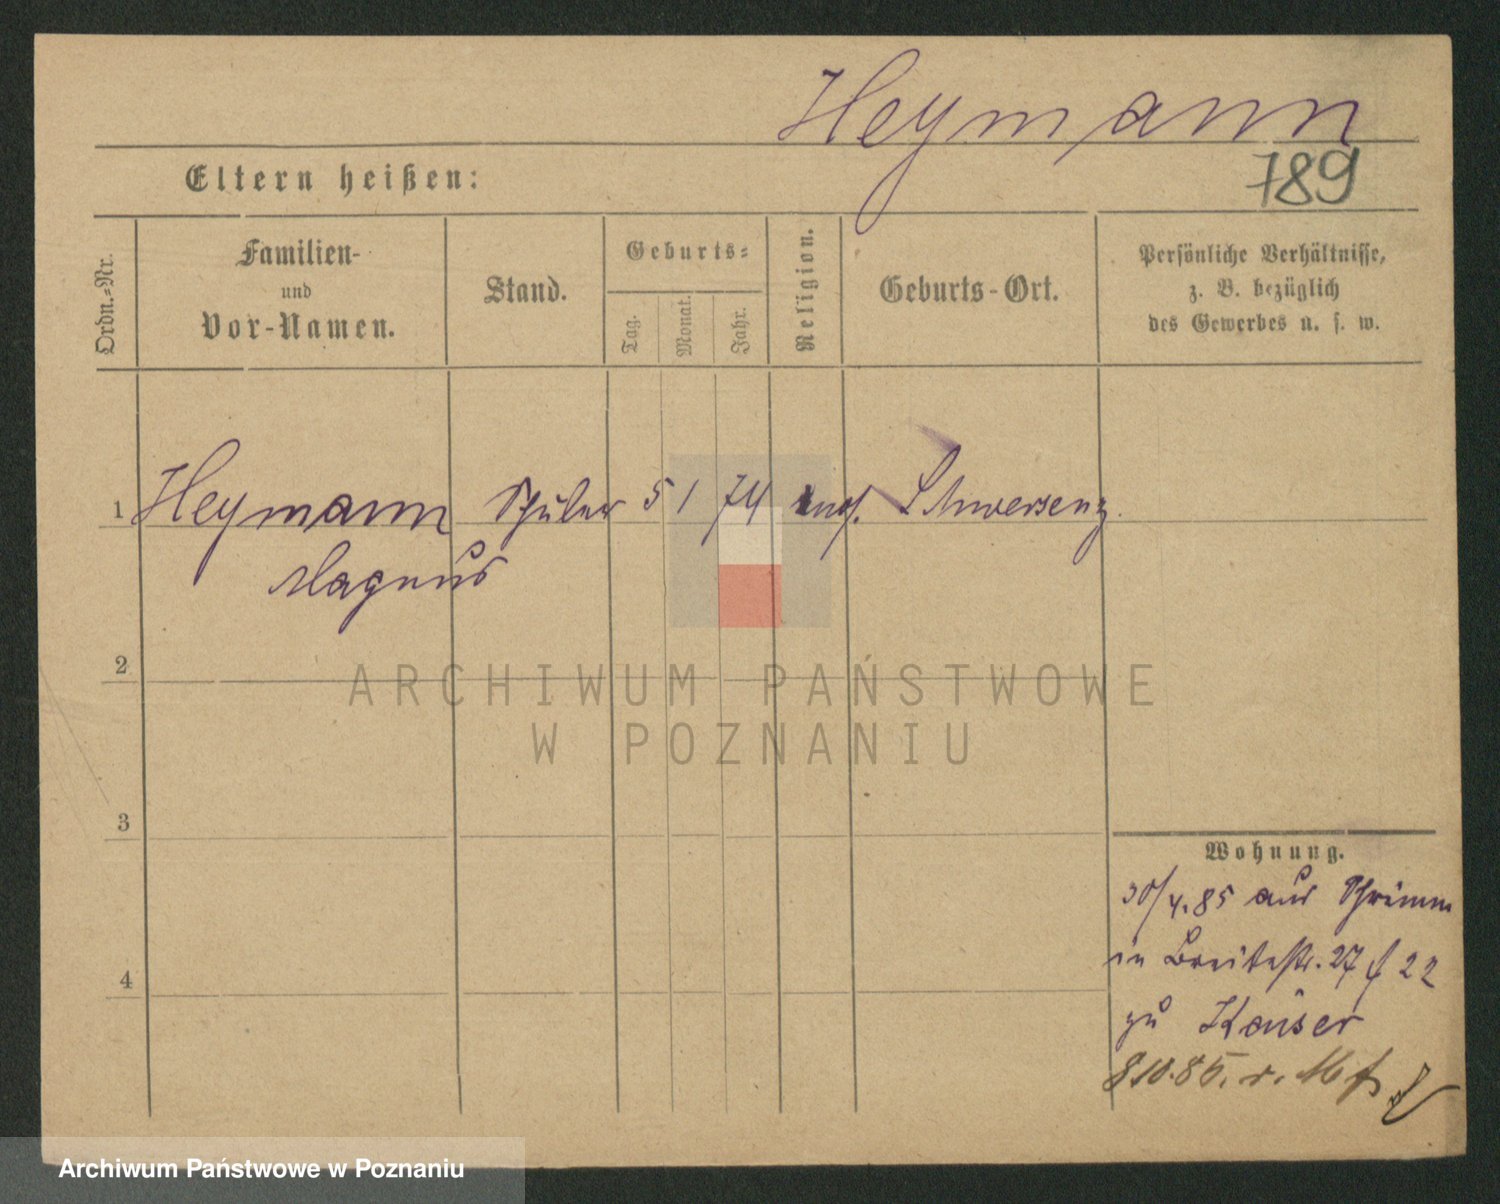 Heymann
Eltern heißen:
789
Ordn.-Nr.
Familien-
und
Vor-Namen.
Stand.
Geburts-
Tag.
Monat.
Jahr.
Religion.
Geburts-Ort.
Persönliche Verhältnisse,
z. B. bezüglich
des Gewerbes u. s. w.
1 Heymann Schüler 5 1 74 mos. Schwersenz
Magnus
2
3
4
Wohnung.
30/4.85 aus Schrimm
in Breitestr. 27 22
zu Kaiser
8.10.85. r.
ARCHIWUM PAŃSTWOWE
W POZNANIU
Archiwum Państwowe w Poznaniu